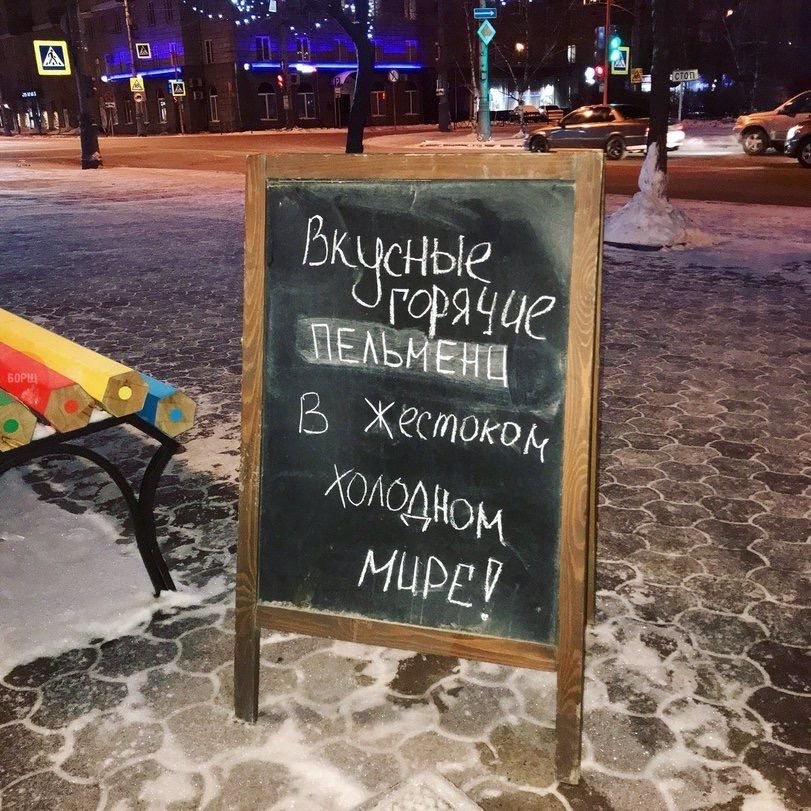 СТОП
Вкусные
горячие
ПЕЛЬМЕНИ
В жестоком
холодном
МИРЕ!
БОРЩ